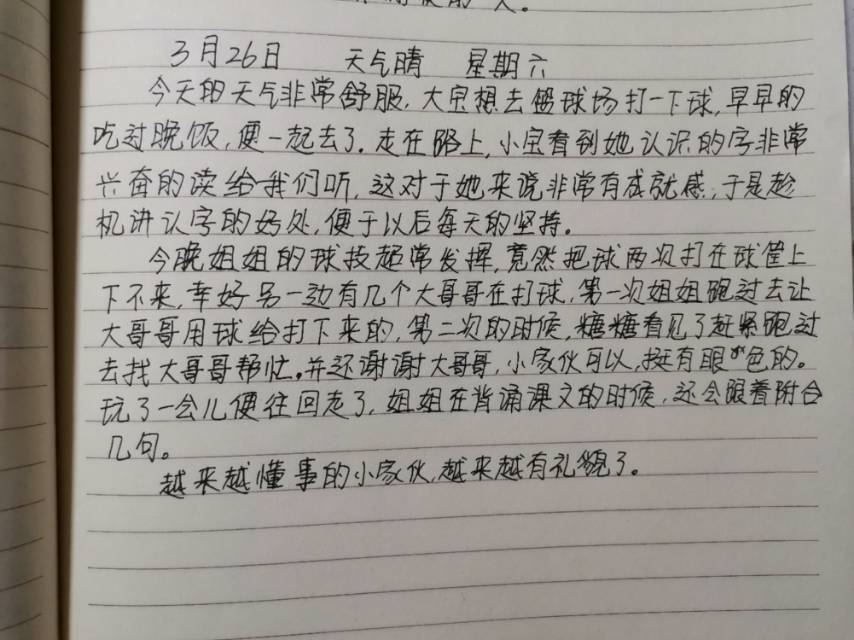 的人。
3月26日 天气晴 星期六
今天的天气非常舒服,大宝想去篮球场打一下球,早早的
吃过晚饭,便一起去了.走在路上,小宝看到她认识的字非常
兴奋的读给我们听,这对于她来说非常有成就感,于是趁
机讲认字的好处,便于以后每天的坚持。
今晚姐姐的球技超常发挥,竟然把球两次打在球筐上
下不来,幸好另一边有几个大哥哥在打球,第一次姐姐跑过去让
大哥哥用球给打下来的,第二次的时候,糖糖看见了赶紧跑过
去找大哥哥帮忙。并还谢谢大哥哥,小家伙可以,挺有眼色的。
玩了一会儿便往回走了,姐姐在背诵课文的时候,还会跟着附合
几句。
越来越懂事的小家伙,越来越有礼貌了。